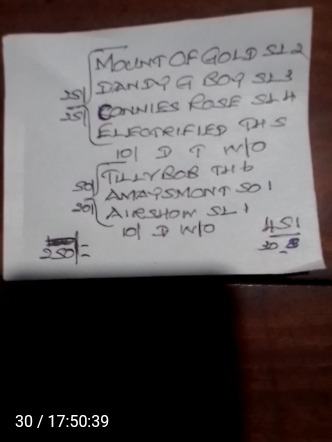 MOUNT OF GOLD SL 2
25/ DANDY G BOY SL 3
25/ CONNIES ROSE SL 4
ELECTRIFIED TH 5
10/ D T W/O
50/ TILLYBOB TH 6
20/ AMAYSMONT SO 1
AIRSHOW SL 1
10/ D W/O
451
250/= 20
30 / 17:50:39